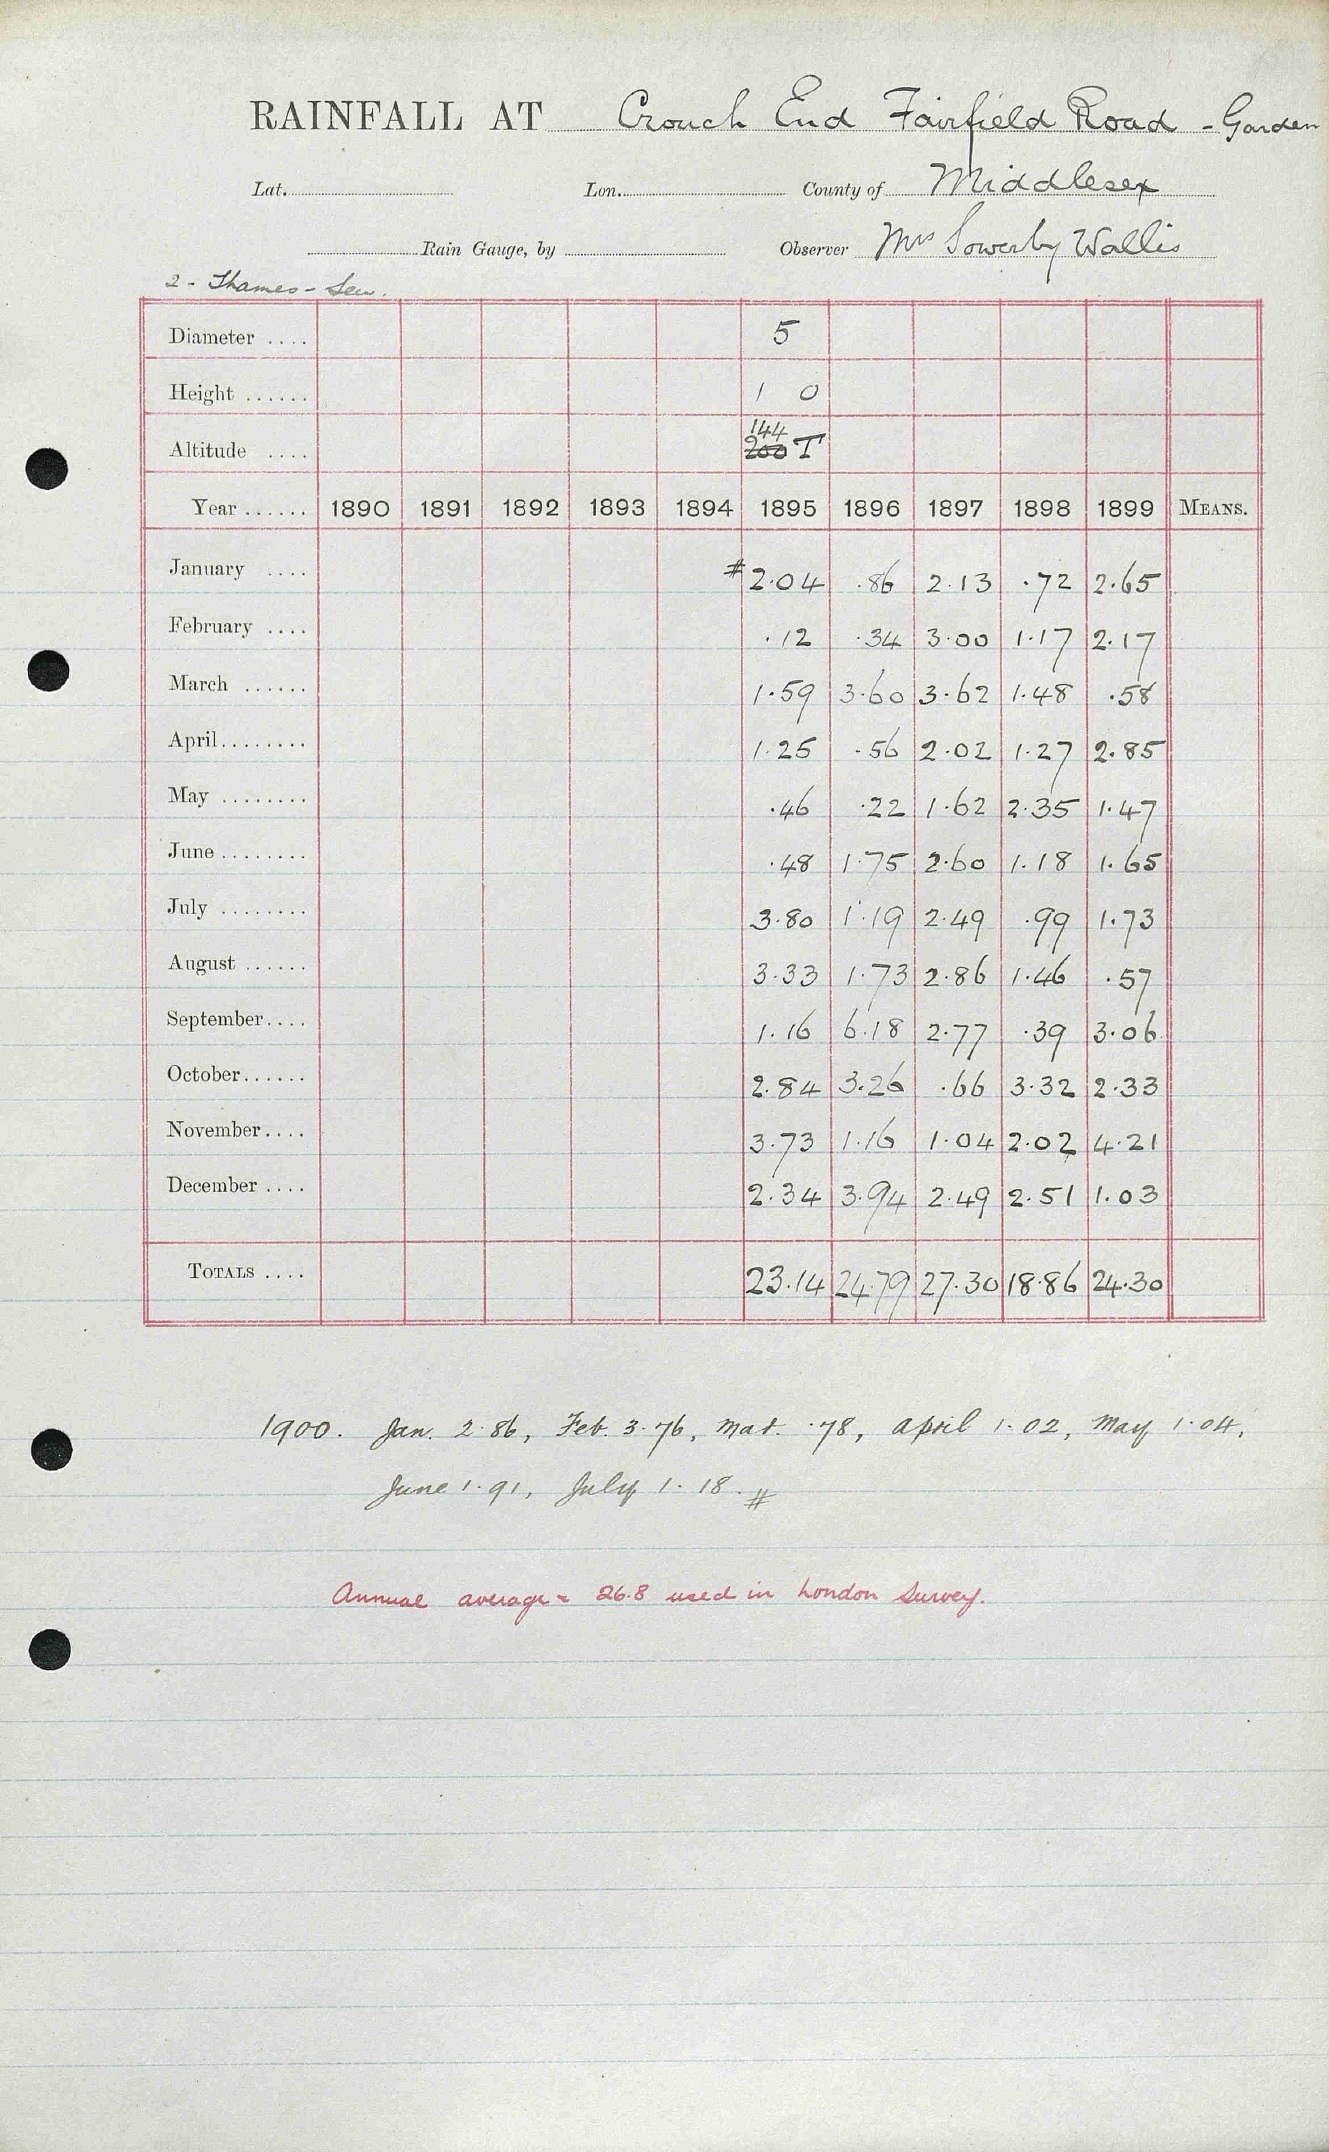 RAINFALL AT Crouch End Fairfield Road - Garden
Lat. Lon. County of Middlesex
Rain Gauge, by Observer Mrs Sowerby Wallis
2 - Thames - Sew.
Diameter .... 5
Height ...... 1 0
144
Altitude .... 200 T
Year ...... 1890 1891 1892 1893 1894 1895 1896 1897 1898 1899 MEANS.
January .... #2.04 .86 2.13 .72 2.65
February .... .12 .34 3.00 1.17 2.17
March ...... 1.59 3.60 3.62 1.48 .58
April ........ 1.25 .56 2.02 1.27 2.85
May ........ .46 .22 1.62 2.35 1.47
June ........ .48 1.75 2.60 1.18 1.65
July ........ 3.80 1.19 2.49 .99 1.73
August ...... 3.33 1.73 2.86 1.46 .57
September .... 1.16 6.18 2.77 .39 3.06
October ...... 2.84 3.26 .66 3.32 2.33
November .... 3.73 1.16 1.04 2.02 4.21
December .... 2.34 3.94 2.49 2.51 1.03
TOTALS .... 23.14 24.79 27.30 18.86 24.30
1900. Jan. 2.86, Feb. 3.76, Mar. .78, April 1.02, May 1.04,
June 1.91, July 1.18. #
Annual average = 26.8 used in London Survey.